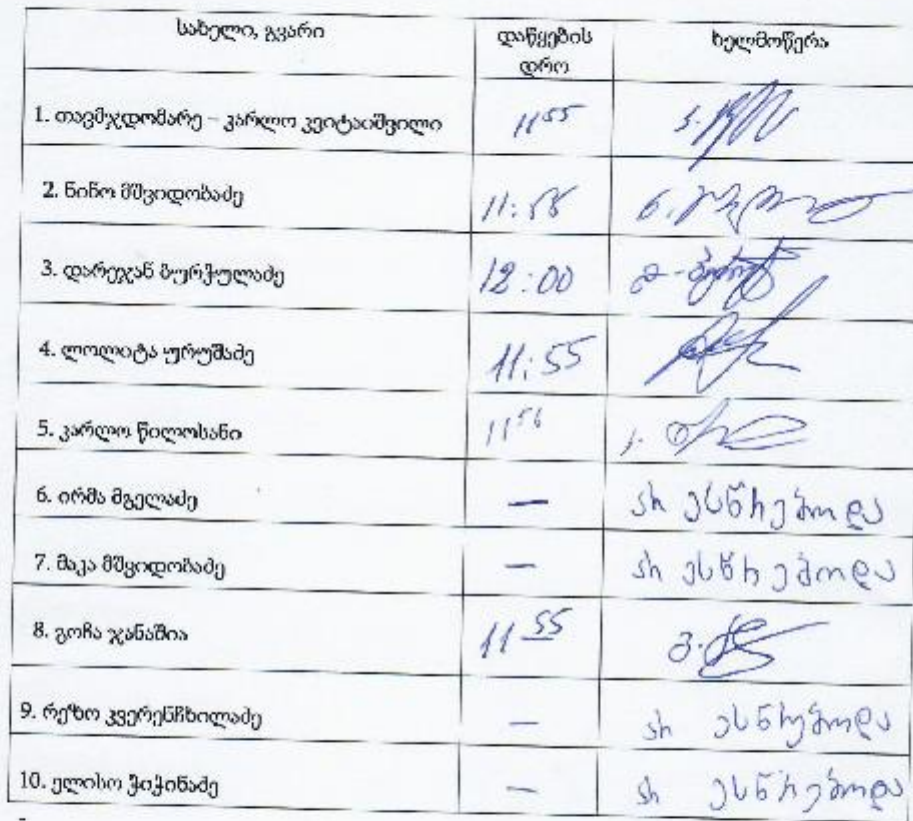 სახელი, გვარი დაწყების დრო ხელმოწერა
1. თავმჯდომარე – კარლო კვიტაიშვილი 11 55
2. ნინო მშვიდობაძე 11:58
3. დარეჯან ბურჭულაძე 12:00
4. ლოლიტა ურუშაძე 11:55
5. კარლო წილოსანი 11 56
6. ირმა მგელაძე — არ ესწრებოდა
7. მაკა მშვიდობაძე — არ ესწრებოდა
8. გოჩა ჯანაშია 11 55
9. რეზო კვერენჩხილაძე — არ ესწრებოდა
10. ელისო ჭიჭინაძე — არ ესწრებოდა